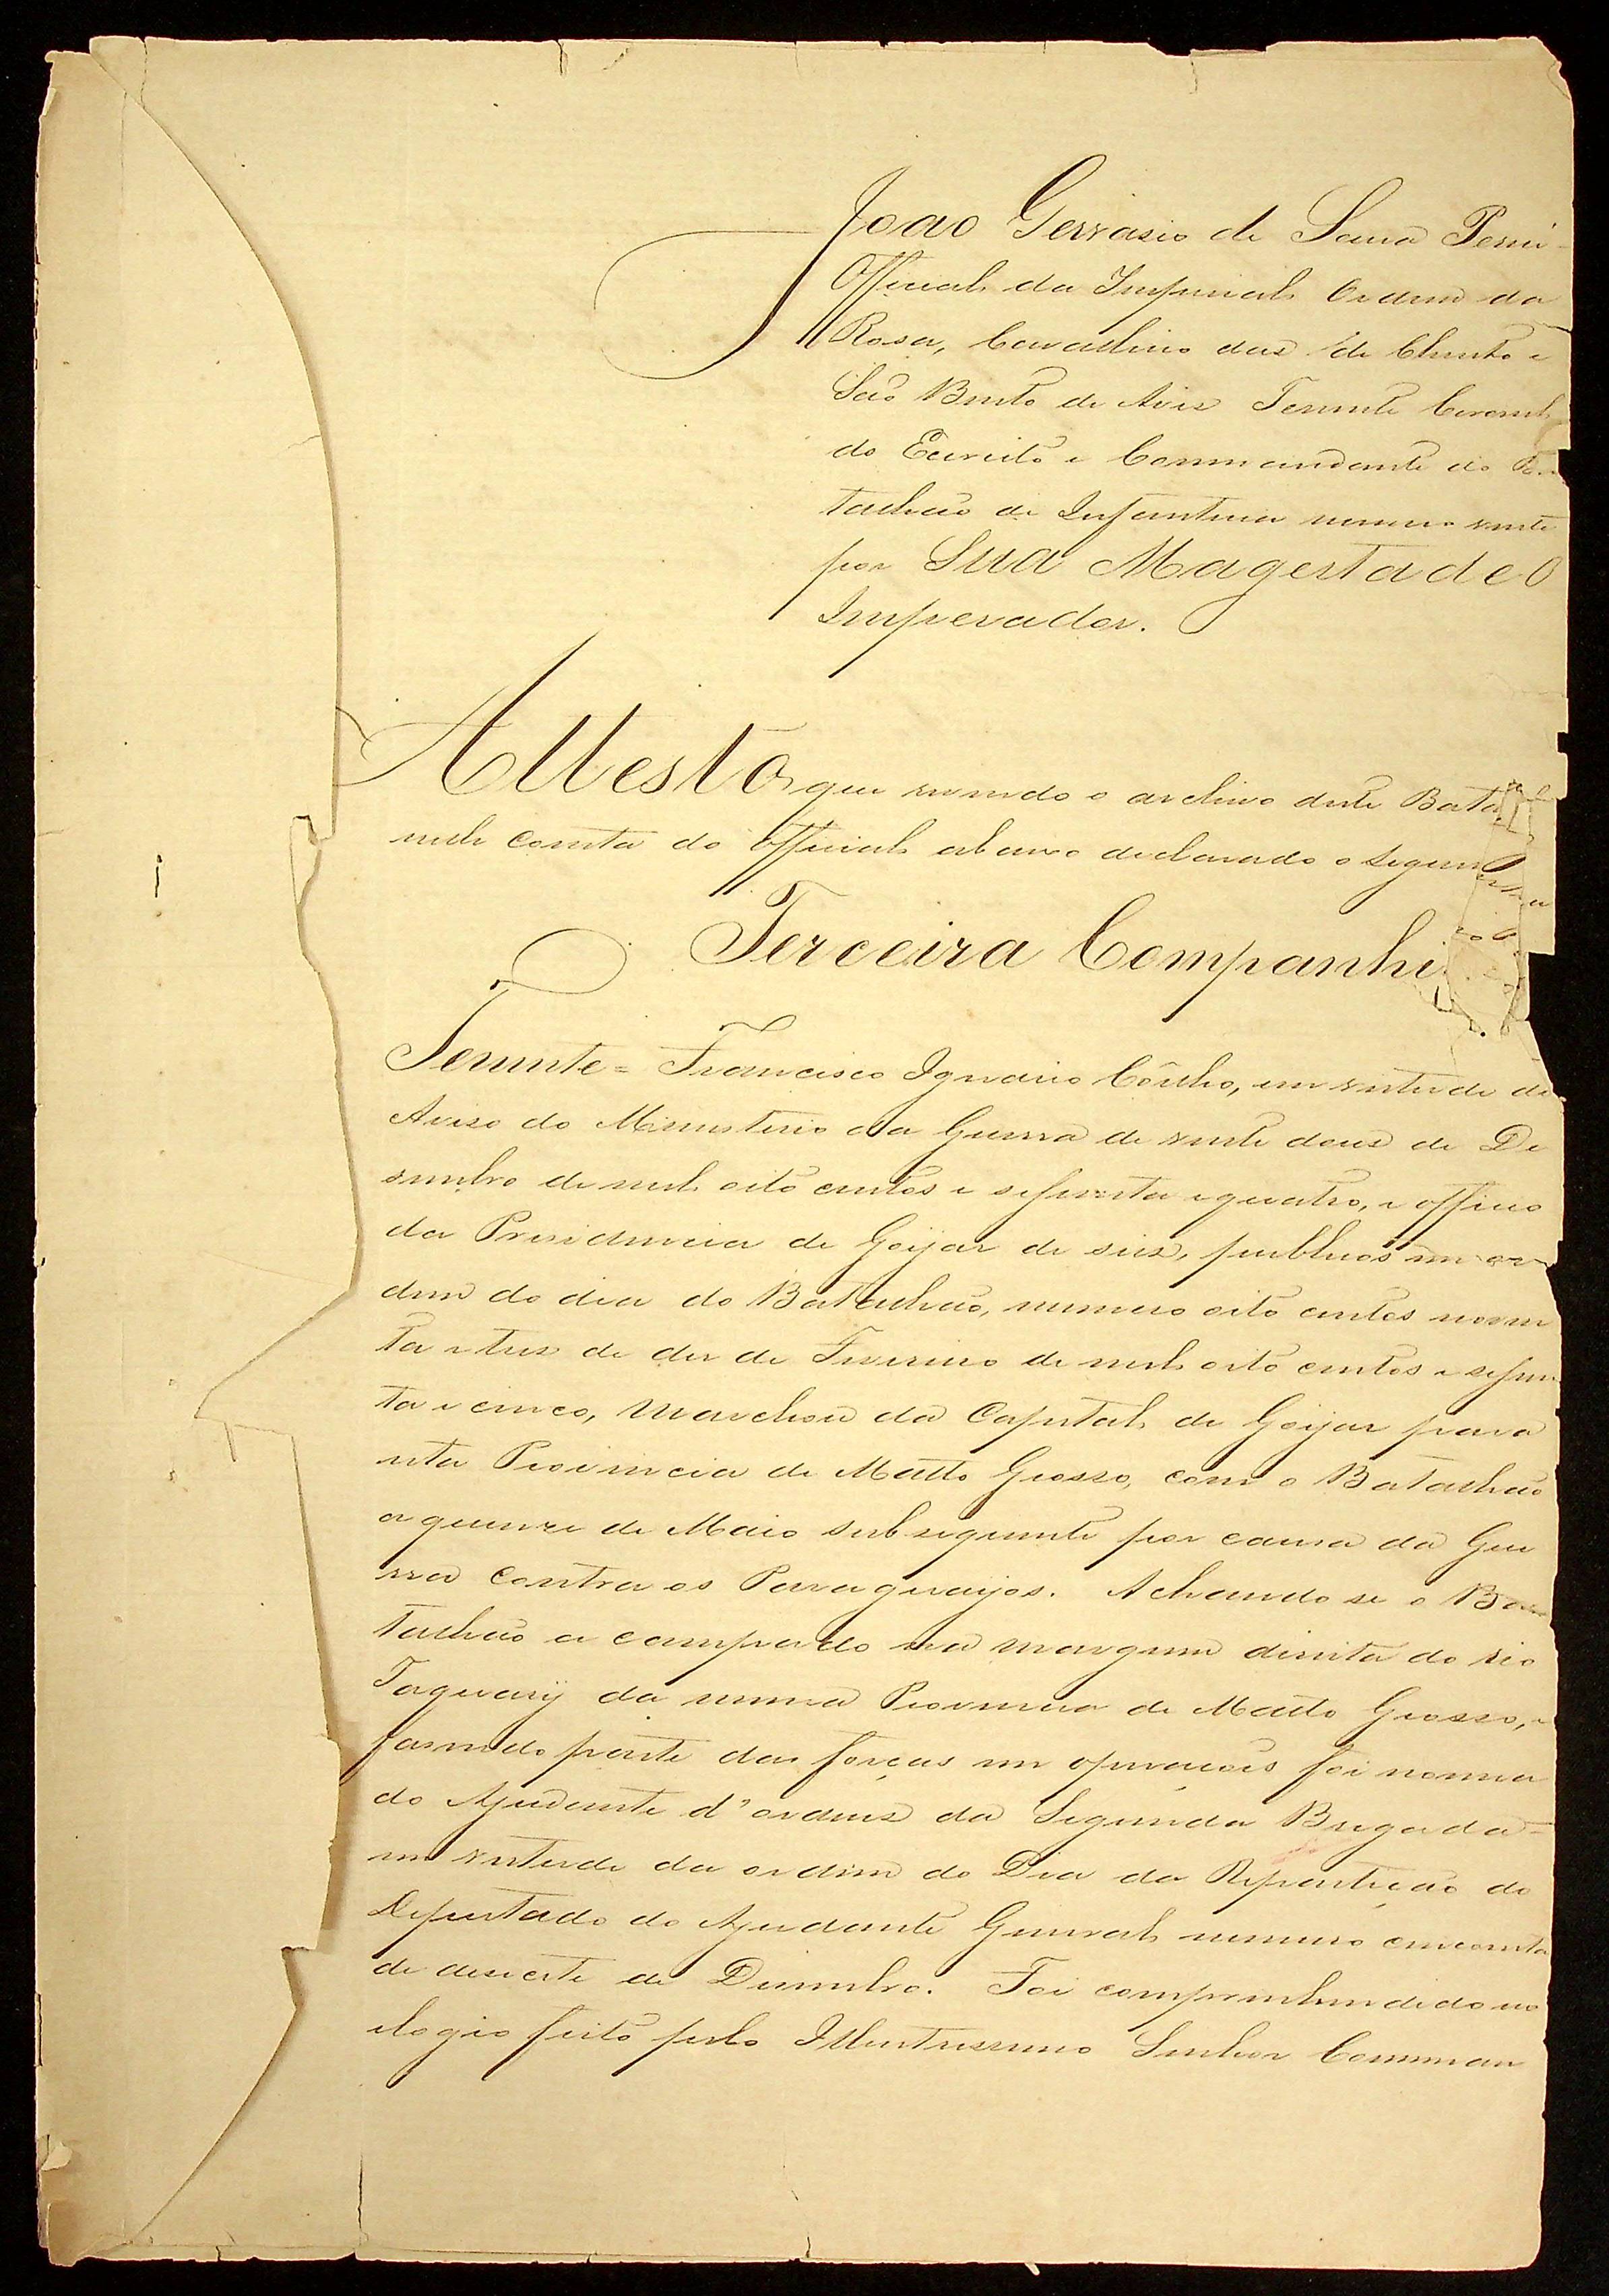 João Gervasio de Sousa Perné
Official da Imperial Ordem da
Rosa, Cavalleiro das de Christo e
São Bento de Aviz Tenente Coronel
do Exercito e Commandante do Ba
talhão de Infantaria numero vinte
por Sua Magestade O
Imperador.
Attesto que revendo o archivo deste Bata
nelle consta do Official abaixo declarado o seguin
Terceira Companhi
Tenente = Francisco Ignacio Coêlho, em virtude do
Aviso do Ministerio da Guerra de vinte dous de De
sembro de mil oito centos e sessenta e quatro, e officio
da Presidencia de Goyaz de seis, publicós em or
dem do dia do Batalhão, numero oito centos noven
ta e tres de dez de Fevereiro de mil oito centos e sessen
ta e cinco, marchou da Capital de Goyaz para
esta Provincia de Matto Grosso, com o Batalhão
a quinze de Maio subsequente por causa da Gue
rra contra os Paraguayos. Achando se o Ba
talhão a campado na margem direita do rio
Taquary da mesma Provincia de Matto Grosso, e
fasendo parte das forças em operações foi nomea
do Ajudante d'ordens da Segunda Brigada =
em virtude da ordem do Dia da Repartição do
Deputado do Ajudante General numero cincoenta
de desesete de Desembro. Foi comprehendido no
elogio feito pelo Illustrissimo Senhor Comman